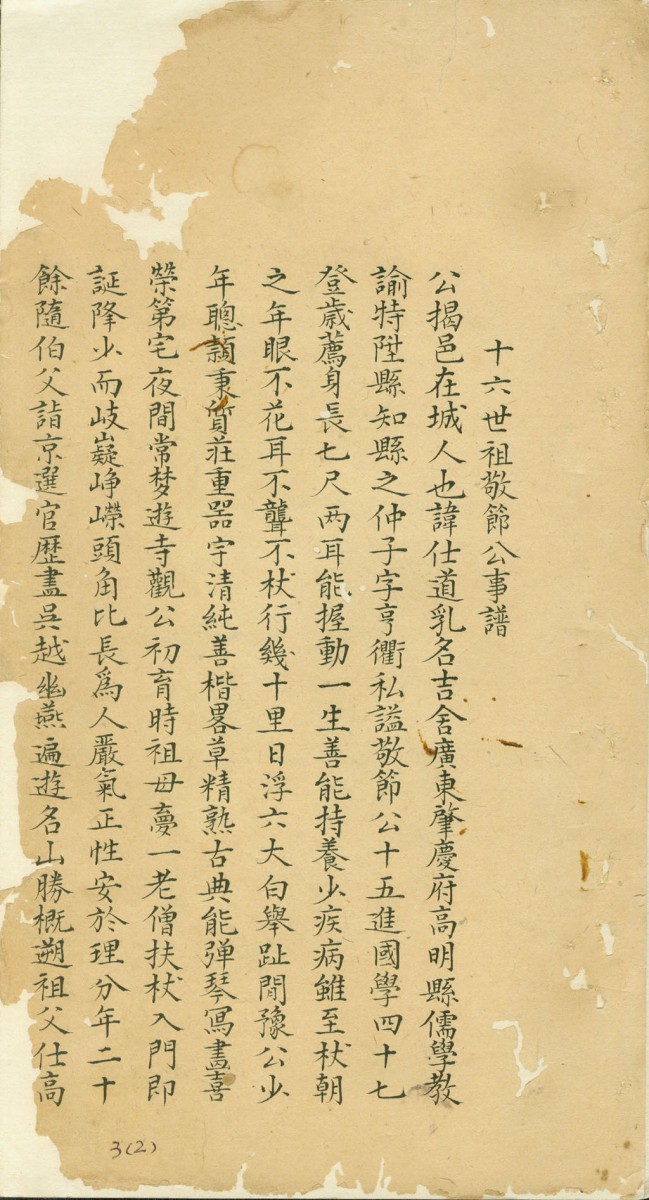 十六世祖敬節公事譜
公揭邑在城人也諱仕道乳名吉舍廣東肇慶府高明縣儒學教
諭特陞縣知縣之仲子字亨衢私謚敬節公十五進國學四十七
登歲薦身長七尺两耳能握動一生善能持養少疾病雖至杖朝
之年眼不花耳不聾不杖行幾十里日浮六大白舉趾閒豫公少
年聰頴秉質莊重器宇清純善楷畧草精熟古典能弹琴寫畵喜
榮第宅夜間常梦遊寺觀公初育時祖毋夣一老僧扶杖入門即
誕降少而岐嶷峥嶸頭角比長爲人嚴氣正性安於理分年二十
餘隨伯父詣京選官歷盡吳越幽燕遍遊名山勝概遡祖父仕高
3(2)